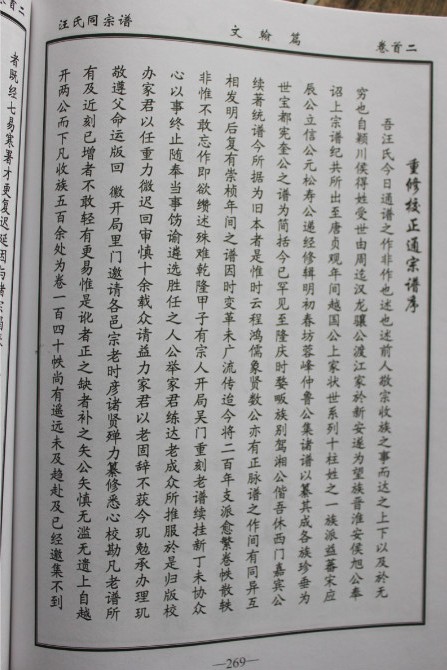 汪氏同宗谱
文翰篇
卷首二
重修校正通宗谱序
吾汪氏今日通谱之作非作也述也述前人敬宗收族之事而达之上下以及於无
穷也自颍川侯得姓受世由周迄汉龙骧公渡江家於新安遂为望族晋淮安侯旭公奉
诏上宗谱纪共所出至唐贞观年间越国公上家状世系列十柱姓之一族派益蕃宋应
辰公立信公元松寿公递经修辑明初春坊蓉峰仲鲁公集诸谱以纂其成各族珍垂为
世宝都宪奎公之谱为简括今已罕见至隆庆时婺畈族别驾湘公偕吾休西门嘉宾公
续著统谱今所据为旧本者是惟时云程鸿儒象贤数公亦有正脉谱之作间有同异互
相发明后复有崇桢年间之谱因时变革未广流传迨今将二百年支派愈繁卷帙散轶
非惟不敢忘作即欲缵述殊难乾隆甲子有宗人开局吴门重刻老谱续挂新丁未协众
心以事终止随奉当事饬谕遴选胜任之人公举家君练达老成众所推服於是归版校
办家君以任重力微迟回审慎十余载众请益力家君以老固辞不获今玑勉承办理玑
敬遵父命运版回 徽开局里门邀请各邑宗老时彦诸贤殚力纂修悉心校勘凡老谱所
有及近刻已增者不敢轻有更易惟是讹者正之缺者补之矢公矢慎无滥无遗上自越
开两公而下凡收族五百余处为卷一百四十帙尚有遥远未及趋赴及已经邀集不到
者既经七易寒署才更复迟延因与诸宗
—269—